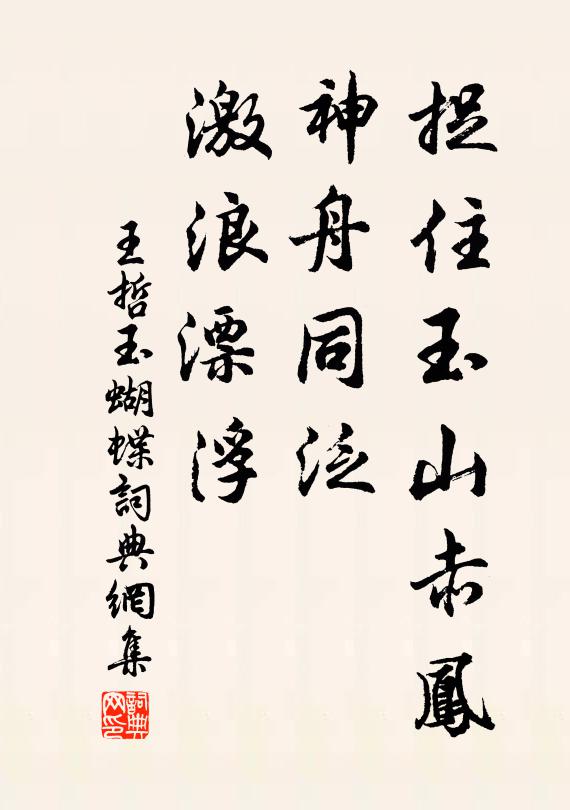 捉住玉山赤鳳
神舟同泛
激浪漂浮
王哲玉蝴蝶詞典網集
詞典网印